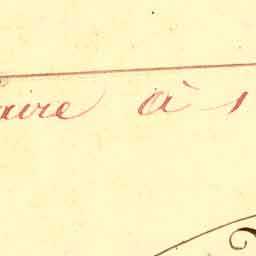 aire à